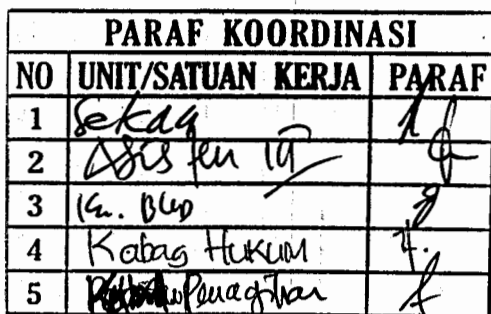 PARAF KOORDINASI
NO UNIT/SATUAN KERJA PARAF
1 Sekda
2 Asisten III
3 Ka. BLUD
4 Kabag Hukum
5 Penagihan